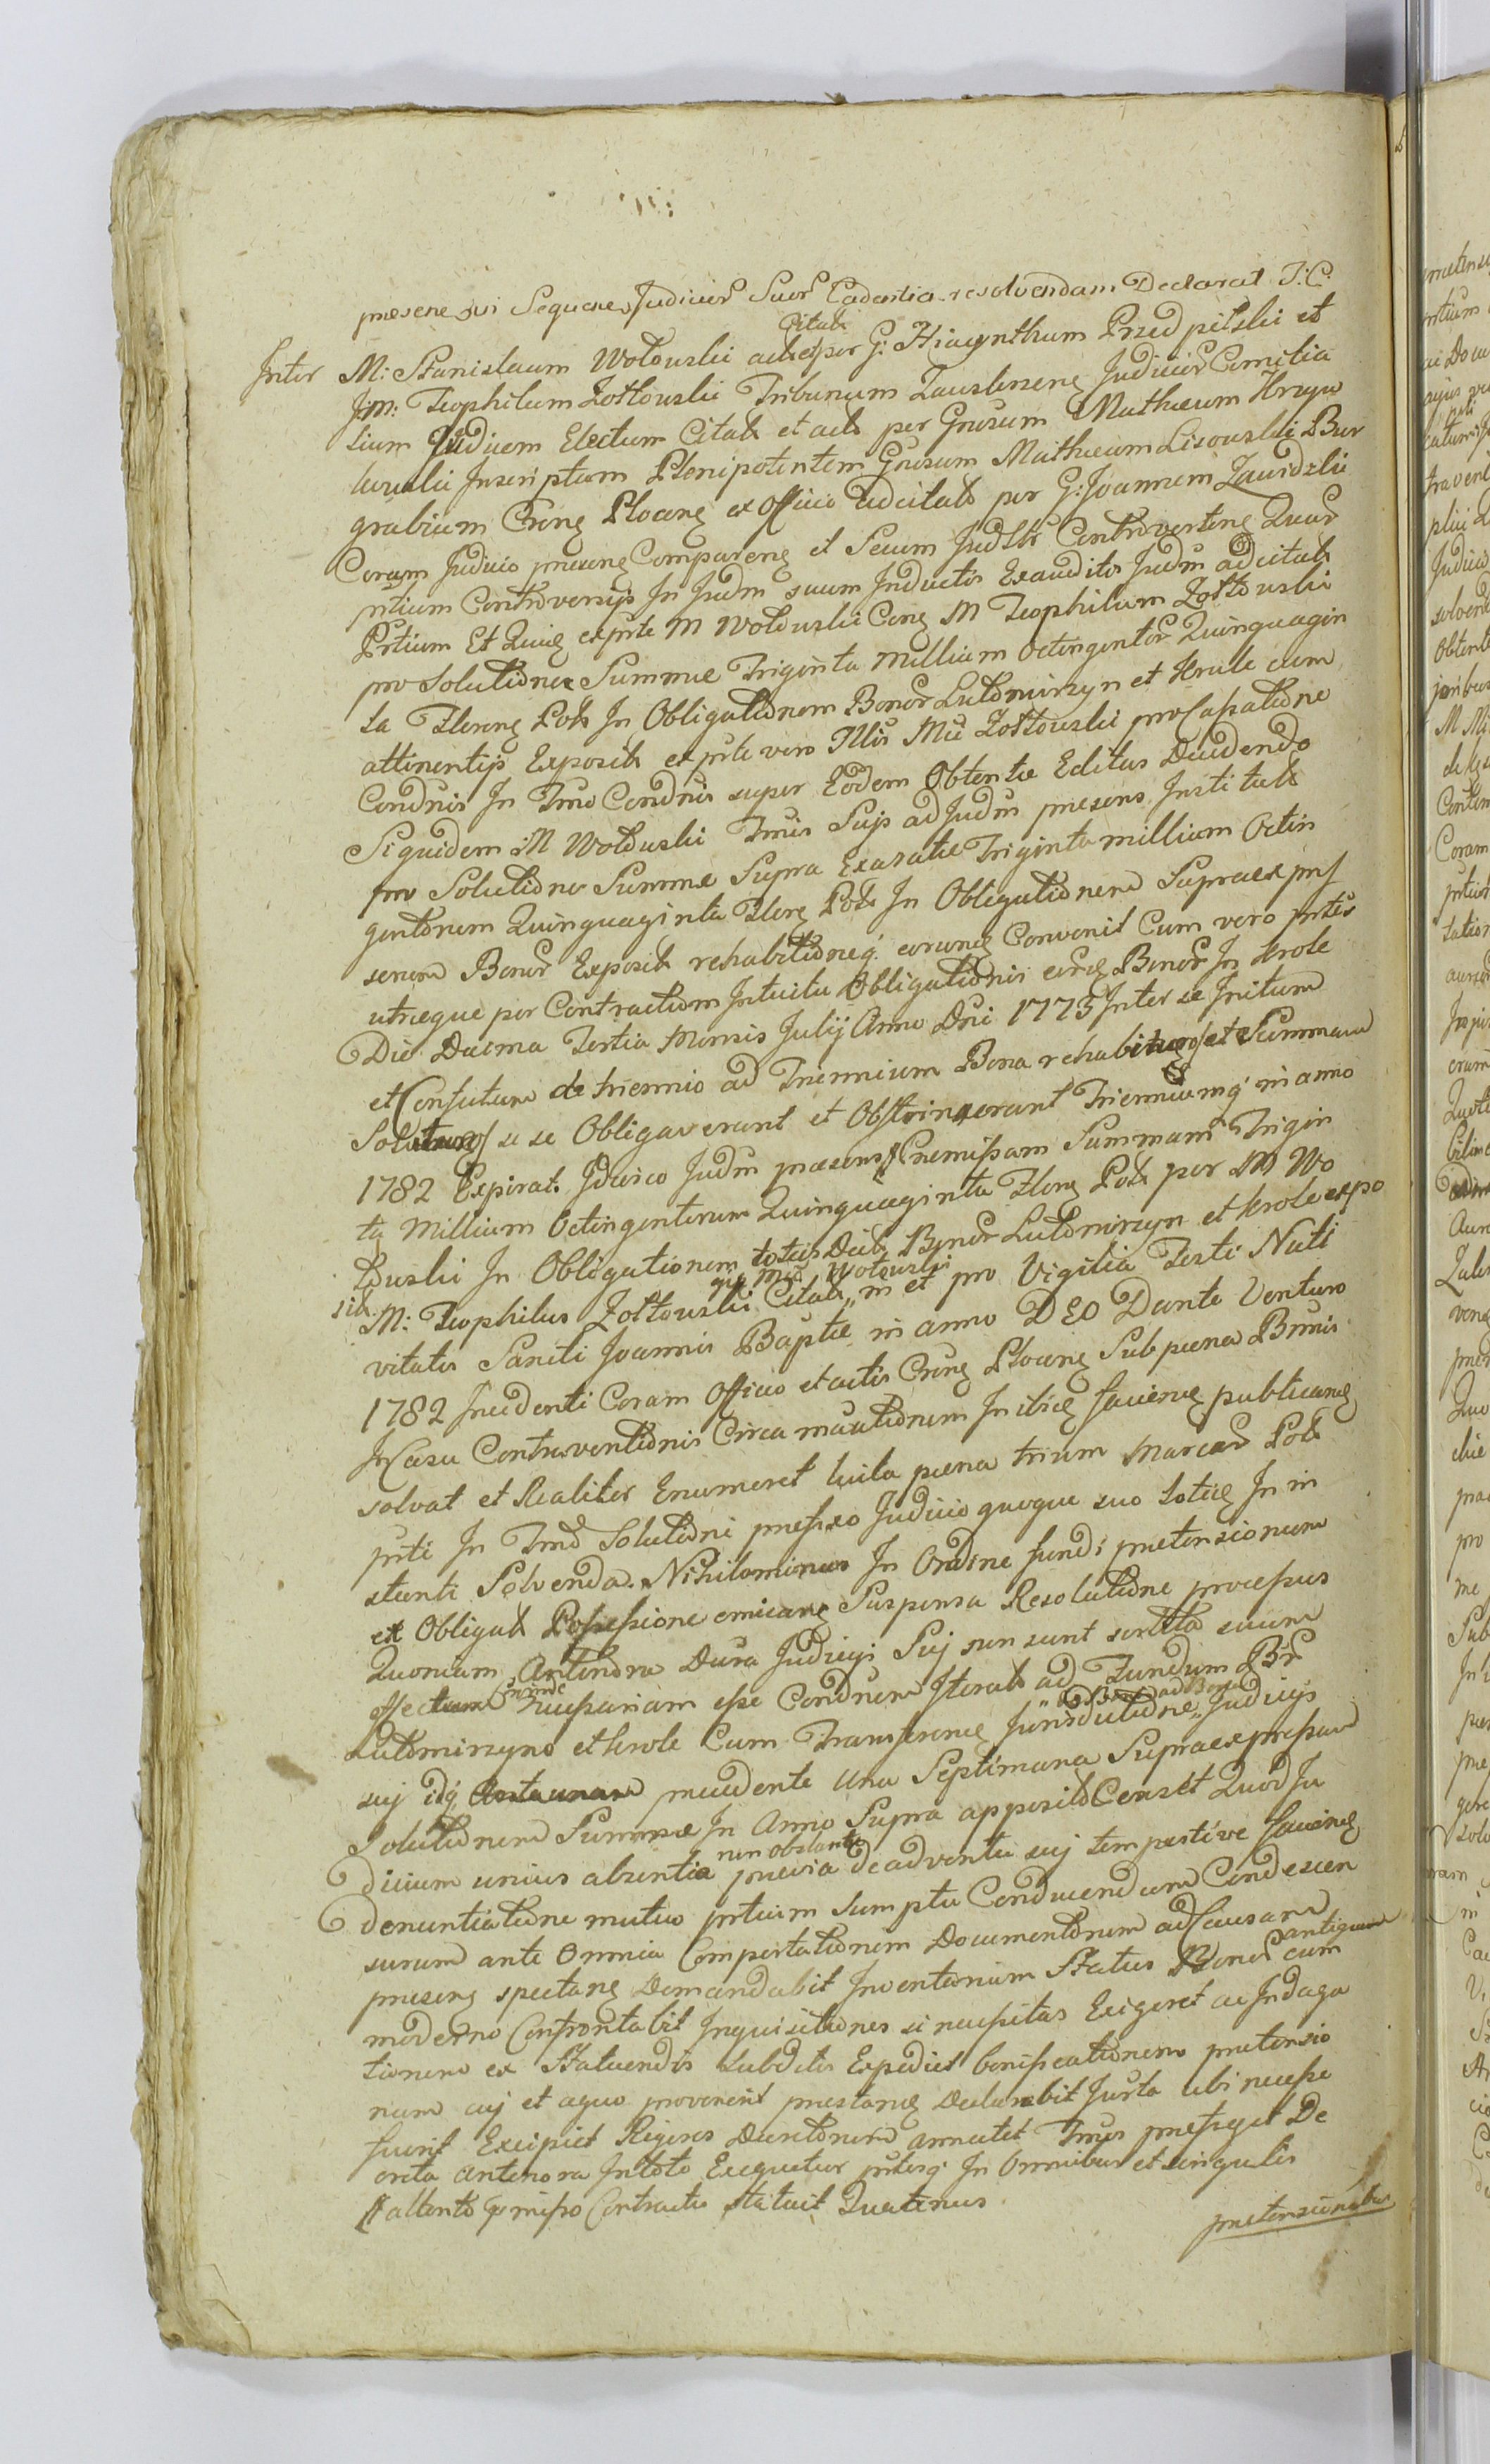 praesene sui Sequene Judicior Suor Cadentia resolvendam Declarat T: C:
Citat
Inter M: Stanislaum Wołowski act et per G: Hiacynthum Przedpełski et
M: Teophilum Zołtowski Tribunum Zauskrzene Judicior Comitia
lium Judicem Electum Citat et act per Grosum Mathaeum Krzyw
kowski Inscriptum Plenipotentem Grosum Mathaeum Lisowski Bur
grabium Crene Plocene ex Officio adcitat per G: Joannem Zawidzki
Coram Judicio praesene Comparene et Secum Judltr Controvertene Quar
prtium Controversijs In Judm suum Inductis Exauditis Judm adcitat
Prtium Et Quia ex prte M Wołowski Cone M Teophilum Zołtowski
pro Solutione Summae Triginta Millium Octingentor Quinquagin
ta Florene Pol In Obligationem Bonor Lutomirzyn et Krole cum
attinentijs Exposit ex prte vero Illis Mci Zołtowski pro Cassatione
Condnis In Tmo Condnis super Eodem Obtentae Editus Decidendo
Siquidem M Wołowski Tmis Sijs ad Judm praesens Institit
pro Solutione Summae Supra Exaratae Triginta millium Octin
gentorum Quinquaginta Flore Pol In Obligationem Supraexpres
sorum Bonor Exposit rehabitioneq. eorune Convenit Cum vero prtes
utraeque per Contractum Intuitu Obligationis eorune Bonor In Krole
Die Decima Tertia Mensis Julij Anno Dni 1773 Inter se Initum
et Confectum de triennio ad Triennium Bona rehabituros et Summam
Soluturos se se Obligaverant et Obstrinxerant Trienniumq in anno
1782 Expirat. Idcirco Judm praesens Praemissam Summam Trigin
ta Millium Octingentorum Quinquaginta Flore Pol per M Wo
łowski In Obligationem totius Dict Bonor Lutomirzyn et Krole expo
sit. M: Teophilus Zołtowski Citat in et pro Vigilia Festi Nati
gio Mco Wołowski
vitatis Sancti Joannis Baptae in anno DEO Dante Venturo
1782 Incidenti Coram Officio et actis Crene Plocene Sub paena Bnnis
In Casu Contraventionis Circa mautionem In Citae faciene publicane
solvat et Realiter Enumeret luita paena trium Marcar Pol
prti In Tmo Solutioni praefixo Judicio quoque suo totie In in
stanti Solvenda. Nihilominus In Ordine fundi praetensionum
et Obligat Possessione emicane Suspensa Resolutione processus
Quoniam Anteriora Dcra Judicij Sui non sunt sortita suum
effectum proinde Necessariam esse Condnem Iterat ad Fundum Bnr
Lutomirzyno et Krole Cum Transferene Jurisdictione Judicijs
suj idq praecedente Una Septimana Supraexpressam
Solutionem Summae In Anno Supra apposito Censet Quod Ju
dicium unius absentia non obstante praevia de adventu suj tempestive faciene
denuntiatione mutuo prtium sumptu Conducendum Condescen
surum ante Omnia Comportationem Documentorum ad Causam
praesene spectane Demandabit Inventarium Status Bonor antiquum cum
moderno Confrontabit Inquisitiones si necessitas Exigeret ac Indaga
tionem ex Statuendis subditis Expediet bonificationem praetensio
num cuj et a quo provenerit praestane declarabit Jurta ubi necesse
fuerit Excipiet Rigores Decretorum annectet Tmus praefiget De
creta anteriora In toto Exequetur prtesq In Omnibus et singulis
attento praemisso Contractu statuit Quatenus
praetensionibus